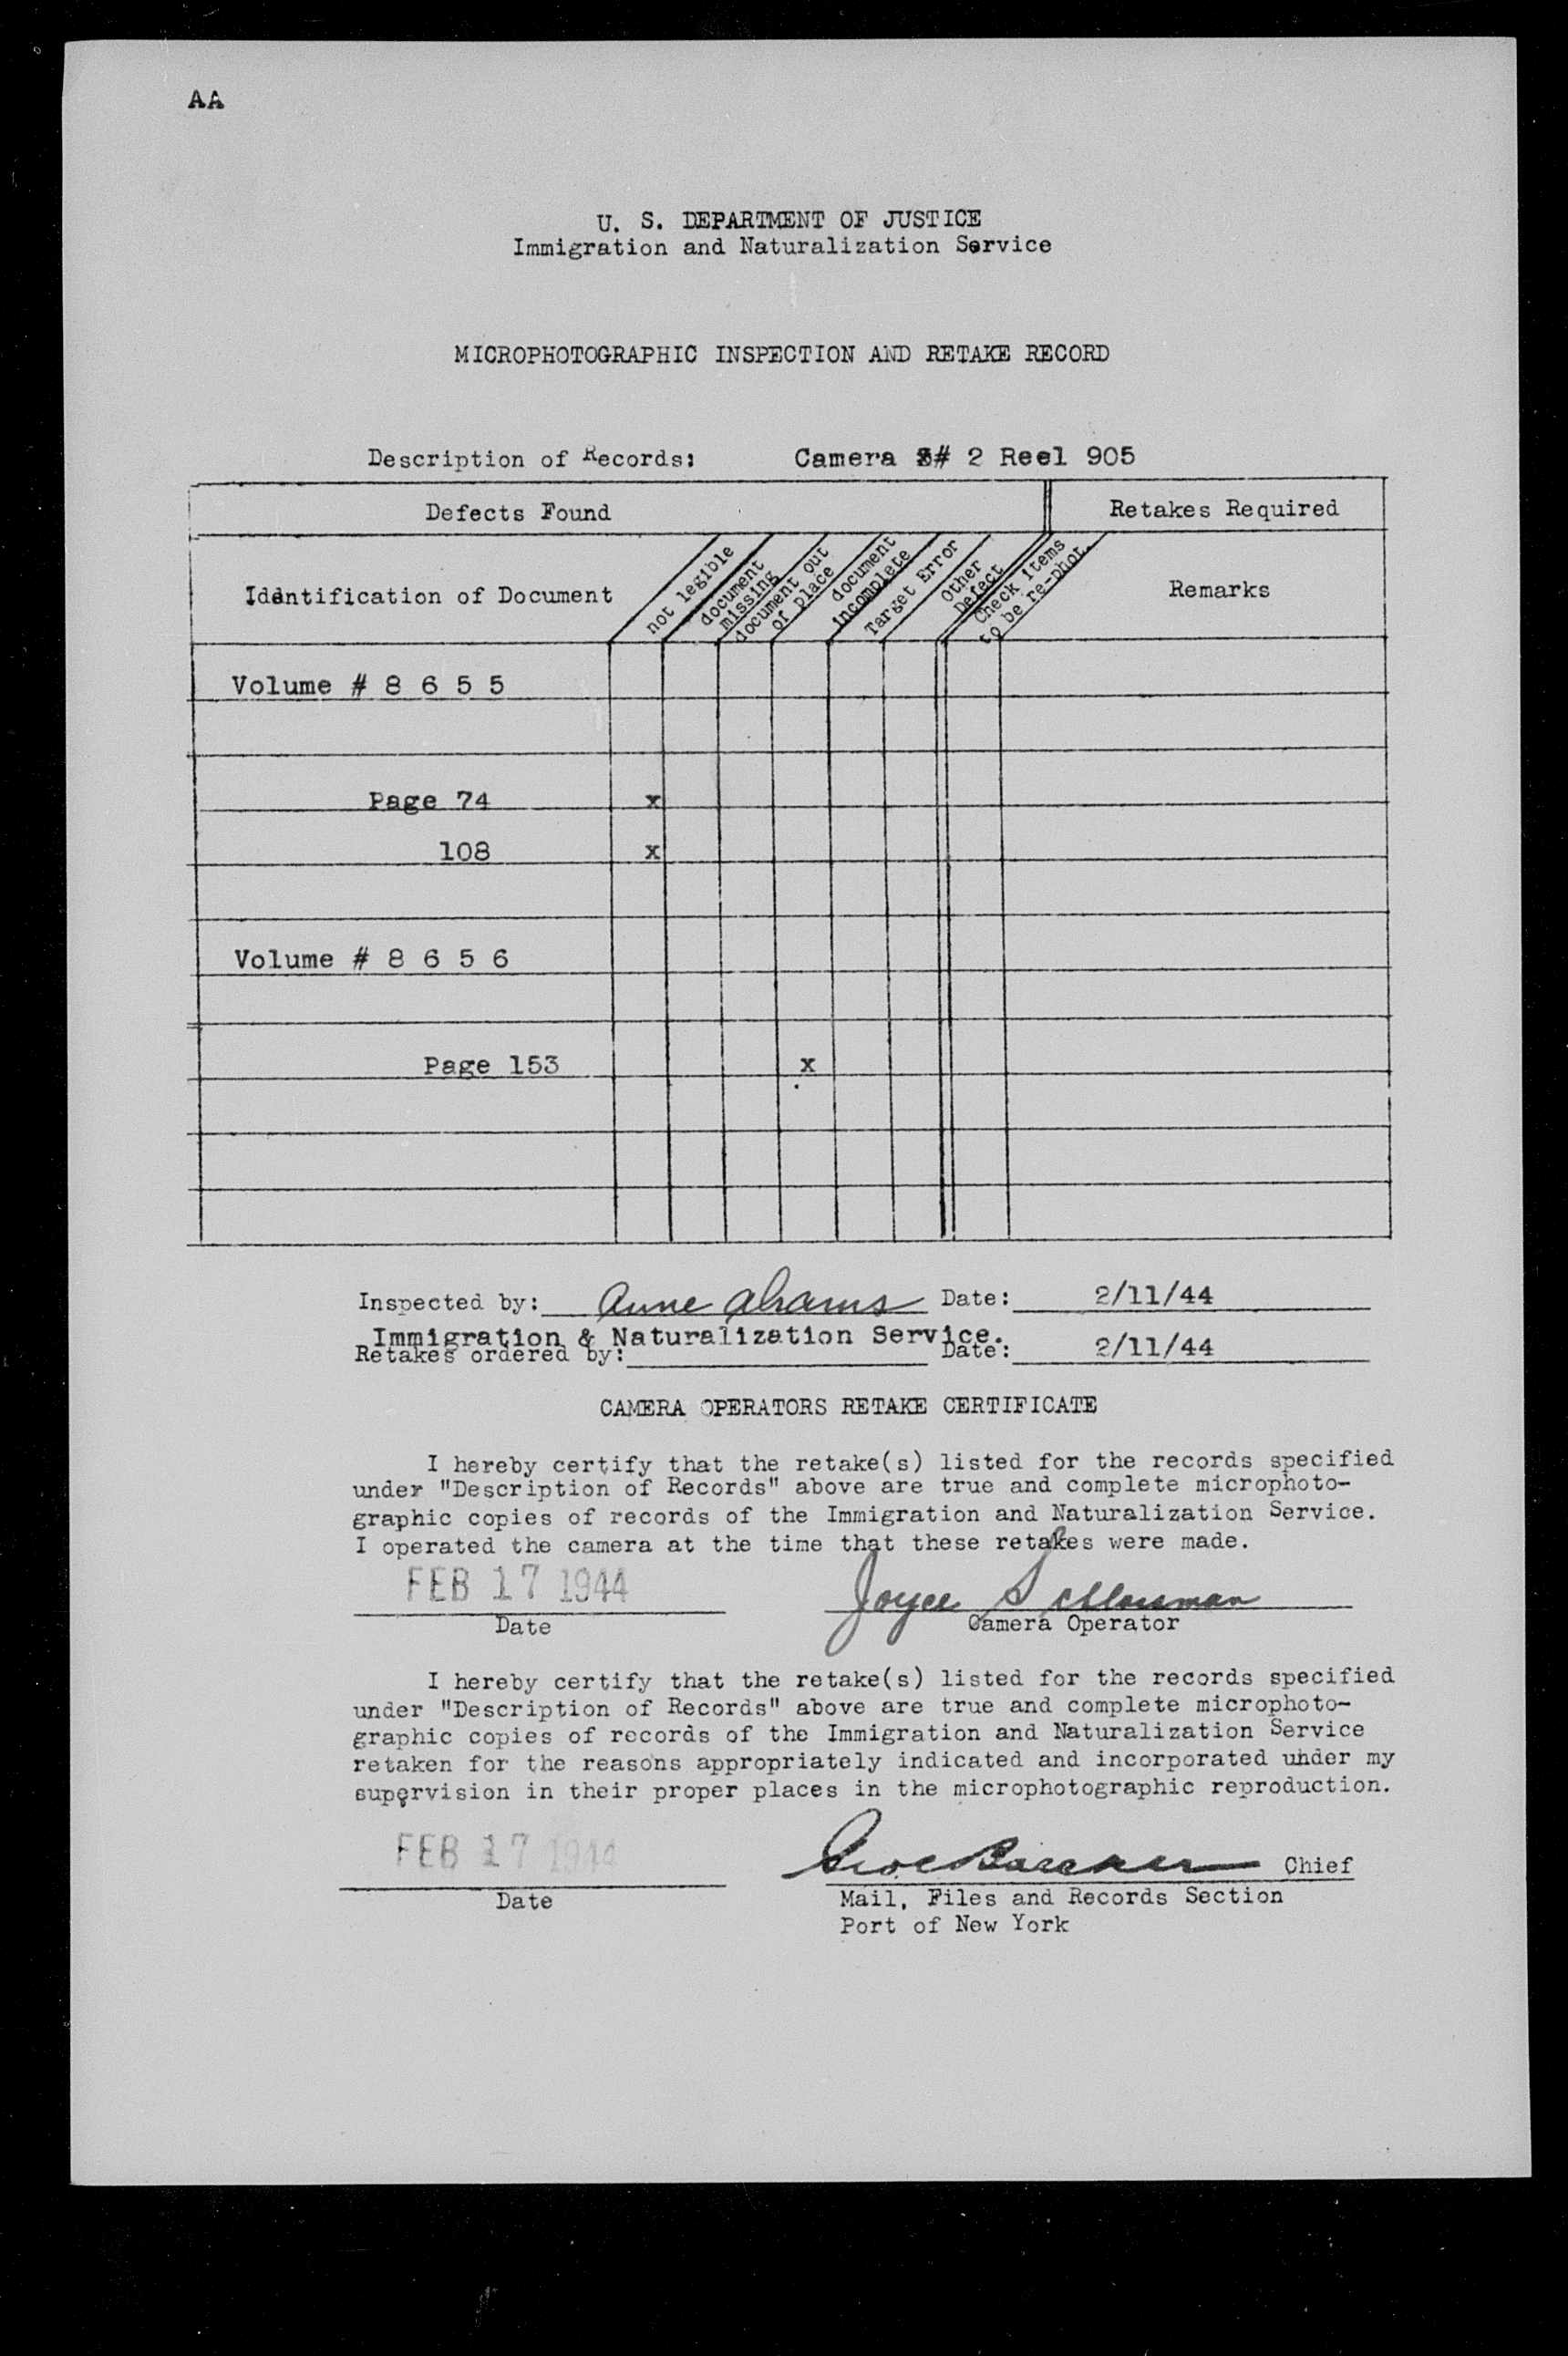 AA
U. S. DEPARTMENT OF JUSTICE
Immigration and Naturalization Service
MICROPHOTOGRAPHIC INSPECTION AND RETAKE RECORD
Description of Records: Camera # 2 Reel 905
Defects Found Retakes Required
Identification of Document
not legible
document
missing
document out
of place
document
incomplete
Target Error
Other
Defect
Check items
to be re-phot.
Remarks
Volume # 8 6 5 5
Page 74 x
108 x
Volume # 8 6 5 6
Page 153 x
Inspected by: Anne Abrams Date: 2/11/44
Immigration & Naturalization Service.
Retakes ordered by: Date: 2/11/44
CAMERA OPERATORS RETAKE CERTIFICATE
I hereby certify that the retake(s) listed for the records specified
under "Description of Records" above are true and complete microphoto-
graphic copies of records of the Immigration and Naturalization Service.
I operated the camera at the time that these retakes were made.
FEB 17 1944 Joyce Schlossman
Date Camera Operator
I hereby certify that the retake(s) listed for the records specified
under "Description of Records" above are true and complete microphoto-
graphic copies of records of the Immigration and Naturalization Service
retaken for the reasons appropriately indicated and incorporated under my
supervision in their proper places in the microphotographic reproduction.
FEB 17 1944 Chief
Date Mail, Files and Records Section
Port of New York